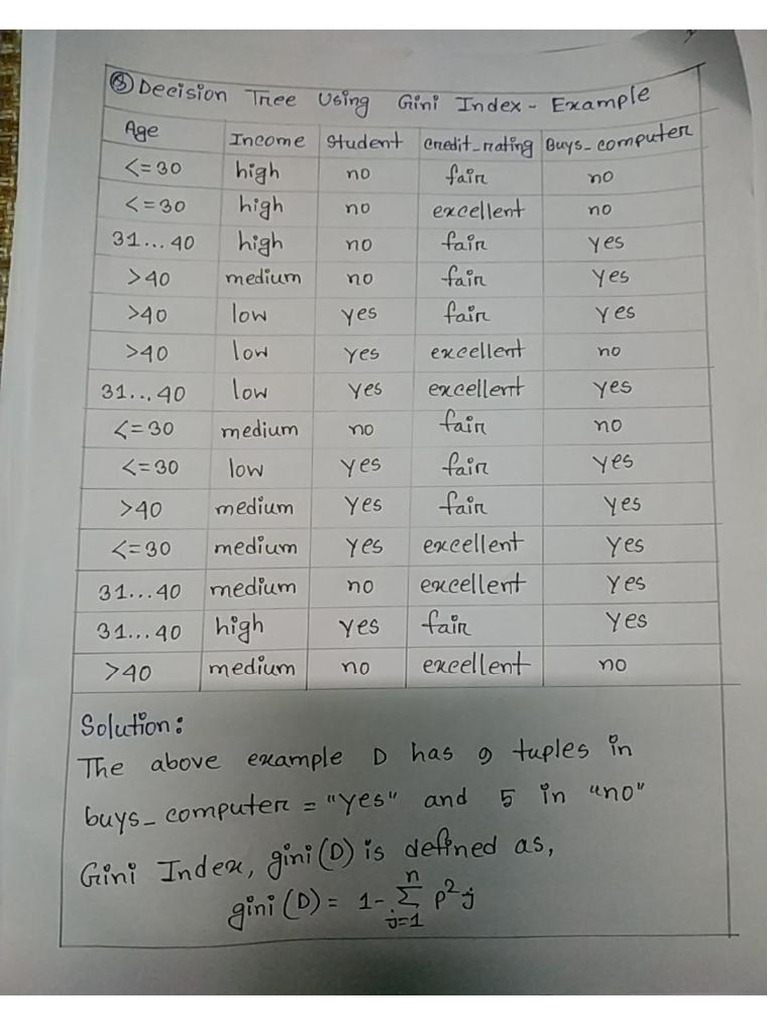 ⑧ Decision Tree Using Gini Index - Example
Age Income Student credit_rating Buys_computer
<=30 high no fair no
<=30 high no excellent no
31...40 high no fair yes
>40 medium no fair yes
>40 low yes fair yes
>40 low yes excellent no
31...40 low yes excellent yes
<=30 medium no fair no
<=30 low yes fair yes
>40 medium yes fair yes
<=30 medium yes excellent yes
31...40 medium no excellent yes
31...40 high yes fair yes
>40 medium no excellent no
Solution:
The above example D has 9 tuples in
buys_computer = "yes" and 5 in "no"
Gini Index, gini(D) is defined as,
gini(D) = 1- n∑j=1 p²j